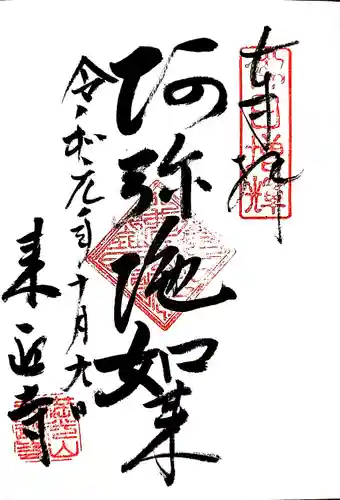 奉拝
阿弥陀如来
令和元年十月九日
来迎寺